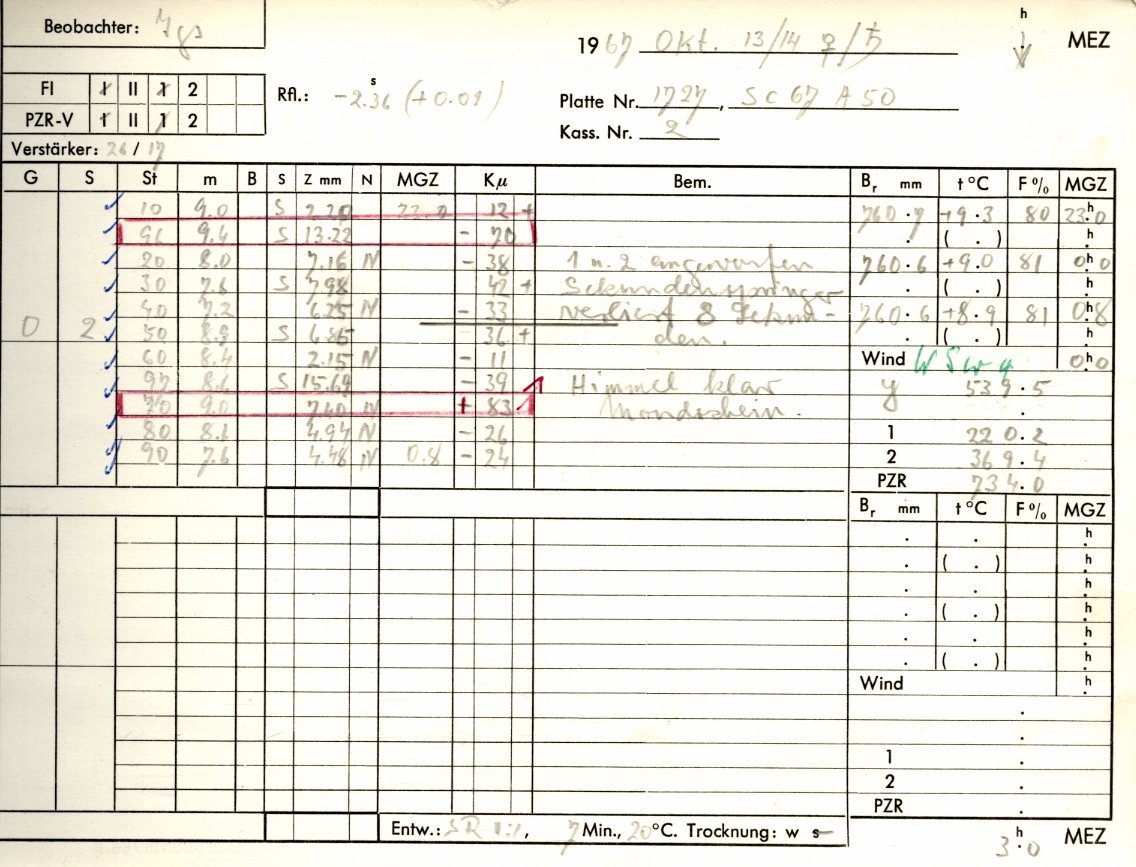 Beobachter: Ygs
h
1967 Okt. 13/14 ♀/♄ MEZ
FI I II 1 2
Rfl.: -2.36 s (+0.01)
Platte Nr. 1727, Sc 67 A 50
PZR-V I II 1 2
Kass. Nr. 2
Verstärker: 26 / 17
G S St m B S Z mm N MGZ Kμ Bem. Br mm t °C F % MGZ
10 9.0 S 2.20 22.0 12 + 760.7 +9.3 80 23h0
91 9.4 S 13.22 - 70 ( . ) h
20 8.0 7.16 N - 38 1 u. 2 angeworfen 760.6 +9.0 81 0h0
30 7.6 S 7.98 42 + Sekundenspringer ( . ) h
40 7.2 6.25 N - 33 verliert 8 Sekun- 760.6 +8.9 81 0h8
0 2 50 8.9 S 6.85 36 + den. ( . ) h
60 8.4 2.15 N - 11 Wind WSW 0h0
97 8.6 S 15.69 - 39 Himmel klar y 539.5
70 9.0 7.40 N + 83 Mondschein. .
80 8.1 4.94 N - 26 1 220.2
90 7.6 4.48 N 0.8 - 24 2 369.4
PZR 734.0
Br mm t °C F % MGZ
. . h
. ( . ) h
. . h
. ( . ) h
. . h
. ( . ) h
Wind h
.
.
1 .
2 .
PZR .
Entw.: SR 1:1, 7 Min., 20°C. Trocknung: w s
3h0 MEZ